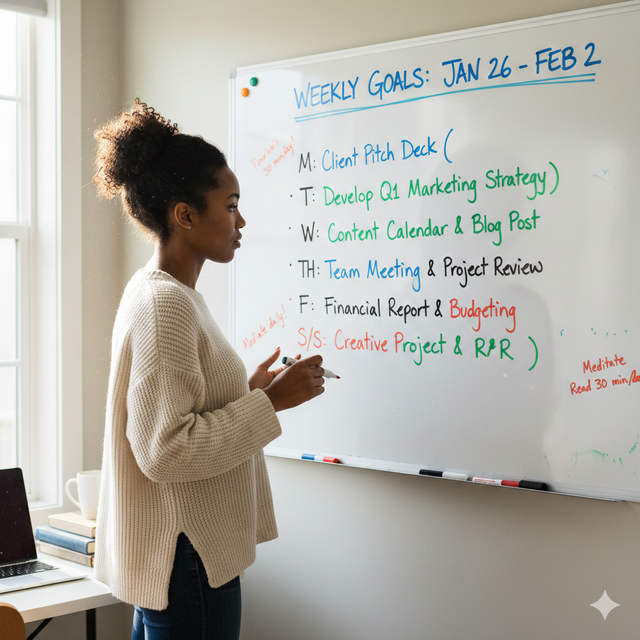 WEEKLY GOALS: JAN 26 - FEB 2
30 minday!
M: Client Pitch Deck (
· T: Develop Q1 Marketing Strategy)
· W: Content Calendar & Blog Post
· TH: Team Meeting & Project Review
· F: Financial Report & Budgeting
Mediate daily!
S/S: Creative Project & R&R )
Meditate
Read 30 min/